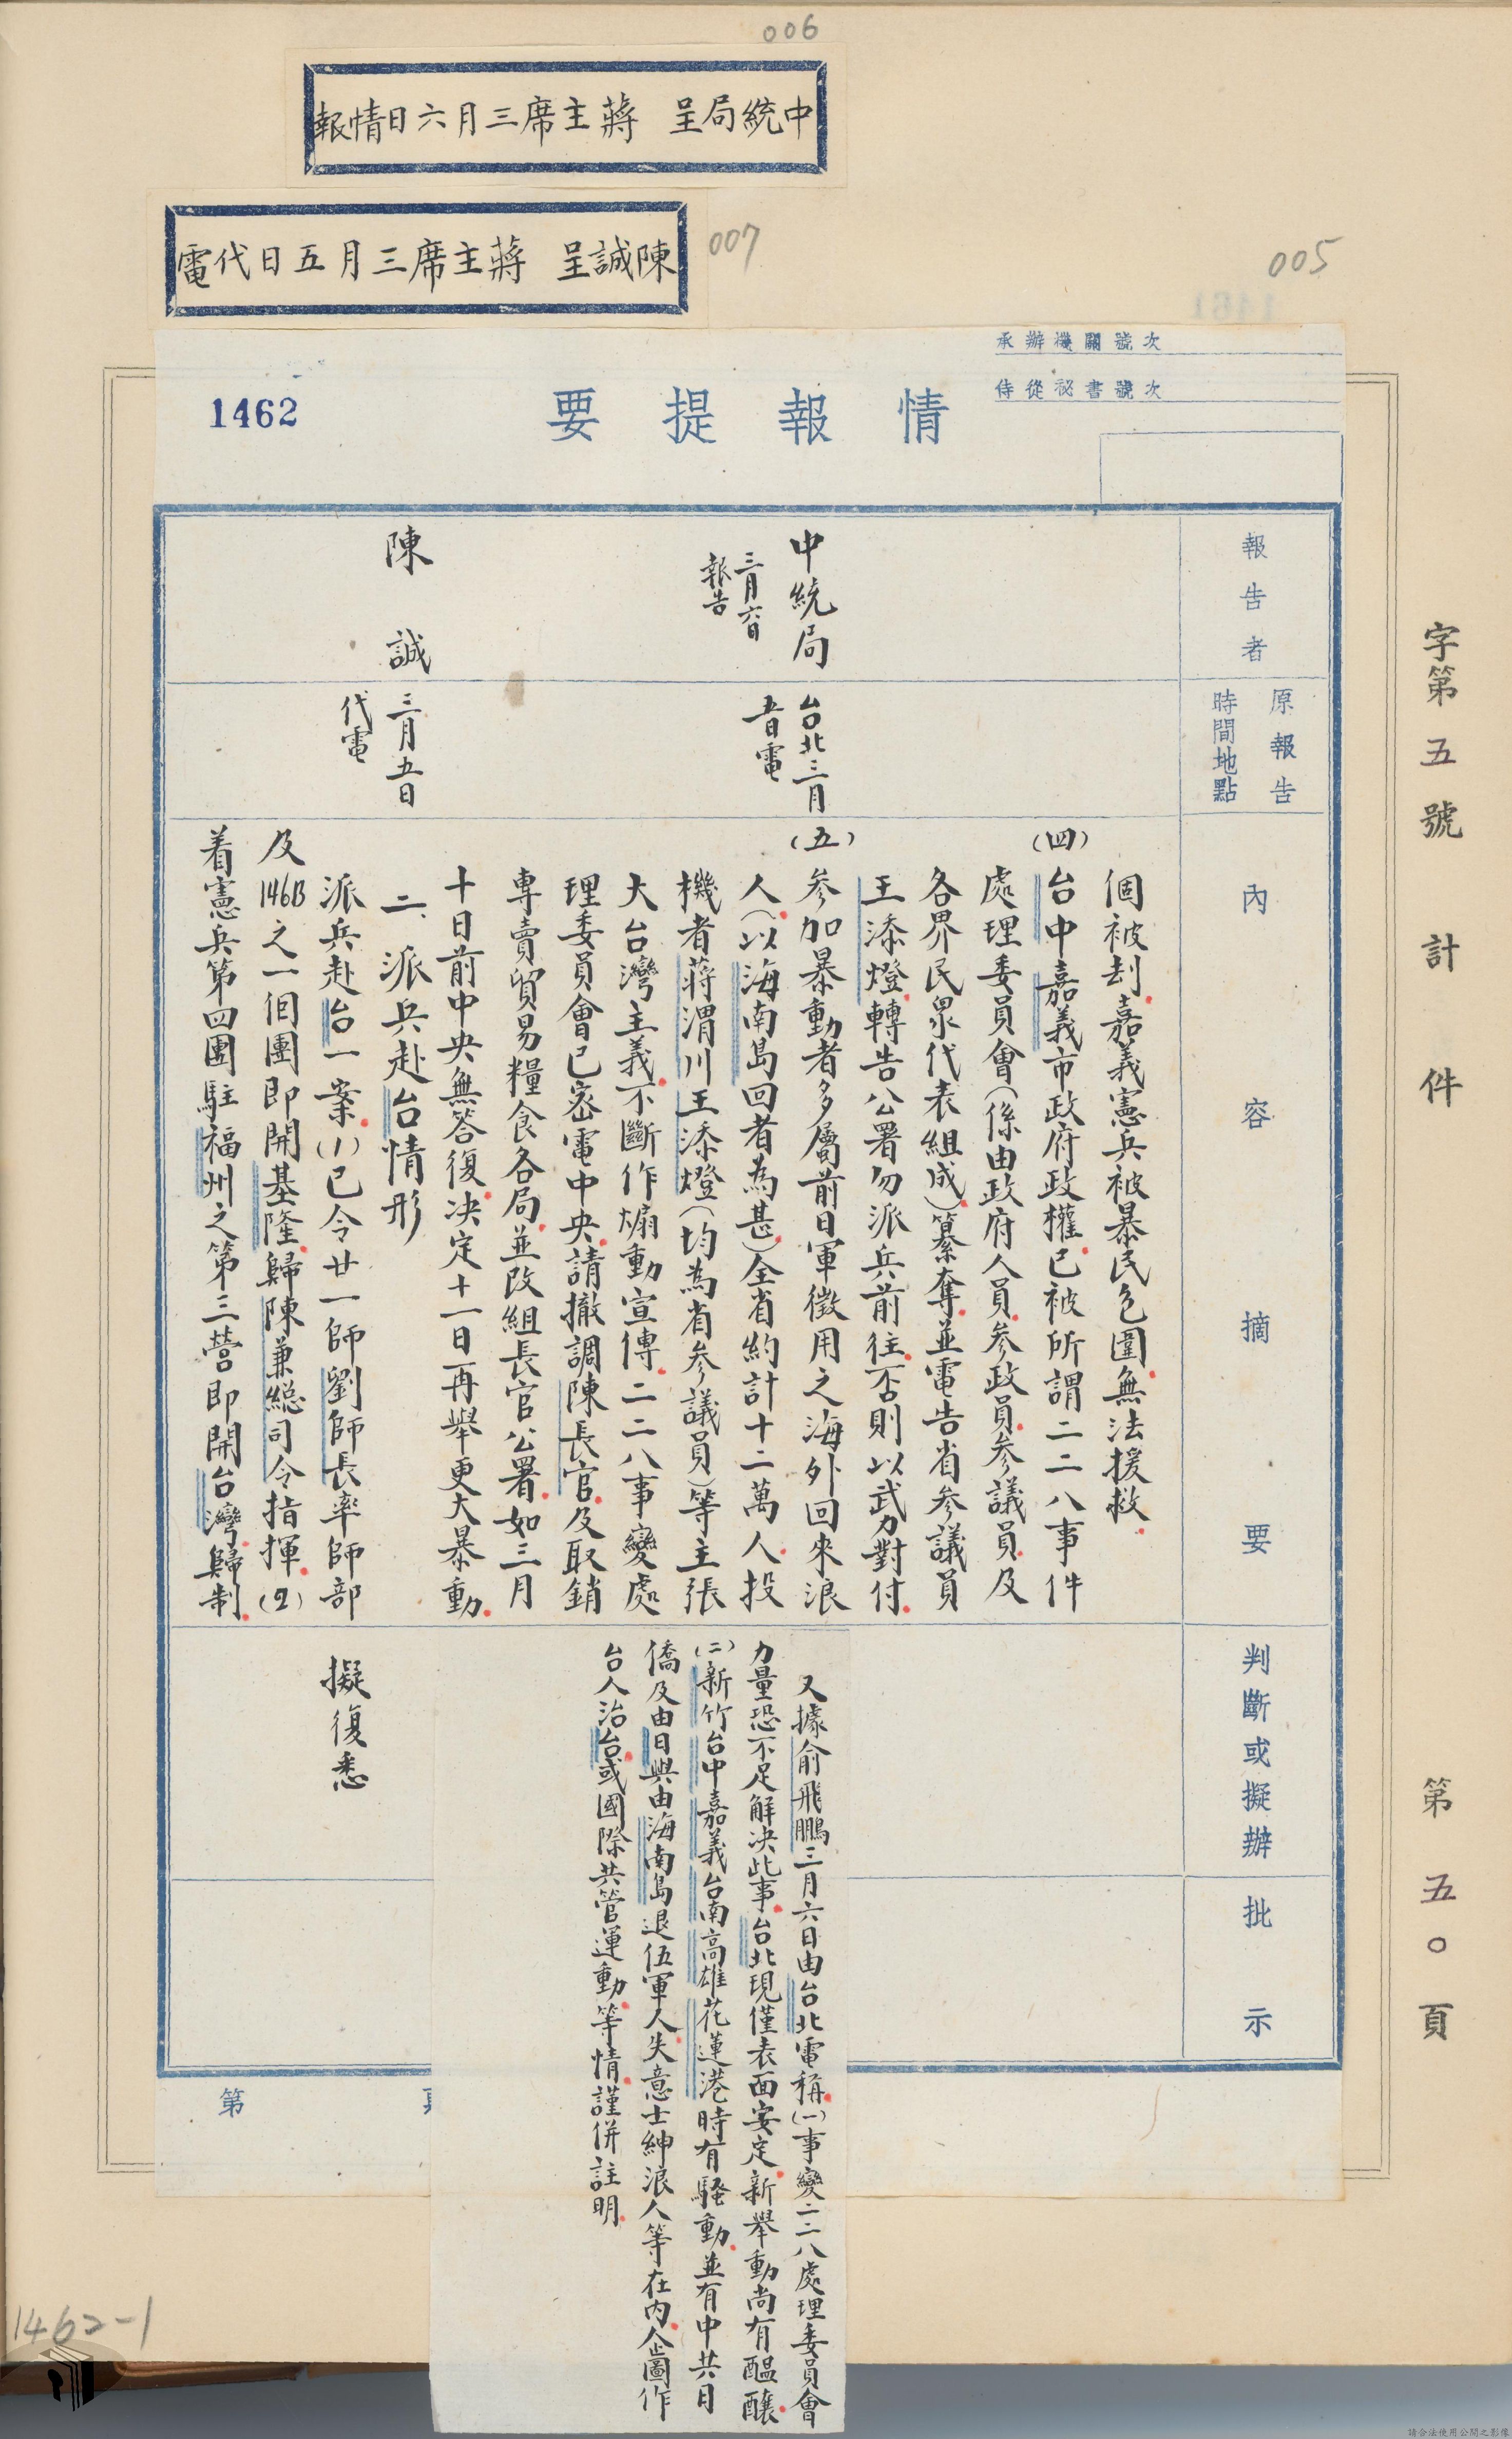 006
中統局呈 蔣主席三月六日情報
陳誠呈 蔣主席三月五日代電
007
005
承辦機關號次
侍從祕書號次
1462
情報提要
報告者
原報告
時間地點
內容摘要
判斷或擬辦
批示
中統局
三月六日
報告
台北三月
五日電
個被刦嘉義憲兵被暴民包圍無法援救
(四)台中嘉義市政府政權已被所謂二二八事件
處理委員會(係由政府人員參政員參議員及
各界民眾代表組成)纂奪並電告省參議員
王添燈轉告公署勿派兵前往否則以武力對付
(五)參加暴動者多屬前日軍徵用之海外回來浪
人(以海南島回者為甚)全省約計十二萬人投
機者蔣渭川王添燈(均為省參議員)等主張
大台灣主義不斷作煽動宣傳二二八事變處
理委員會已密電中央請撤調陳長官及取銷
專賣貿易糧食各局並改組長官公署如三月
十日前中央無答復決定十一日再舉更大暴動
陳誠
三月五日
代電
二、派兵赴台情形
派兵赴台一案(1)已令廿一師劉師長率師部
及146B之一個團即開基隆歸陳兼總司令指揮(2)
着憲兵第四團駐福州之第三營即開台灣歸制
又據俞飛鵬三月六日由台北電稱(一)事變二二八處理委員會
力量恐不足解決此事台北現僅表面安定新舉動尚有醞釀
(二)新竹台中嘉義台南高雄花蓮港時有騷動並有中共日
僑及由日與由海南島退伍軍人失意士紳浪人等在內企圖作
台人治台或國際共管運動等情謹併註明
擬復悉
第 頁
字第五號計 件
第五〇頁
1462-1
請合法使用公開之影像